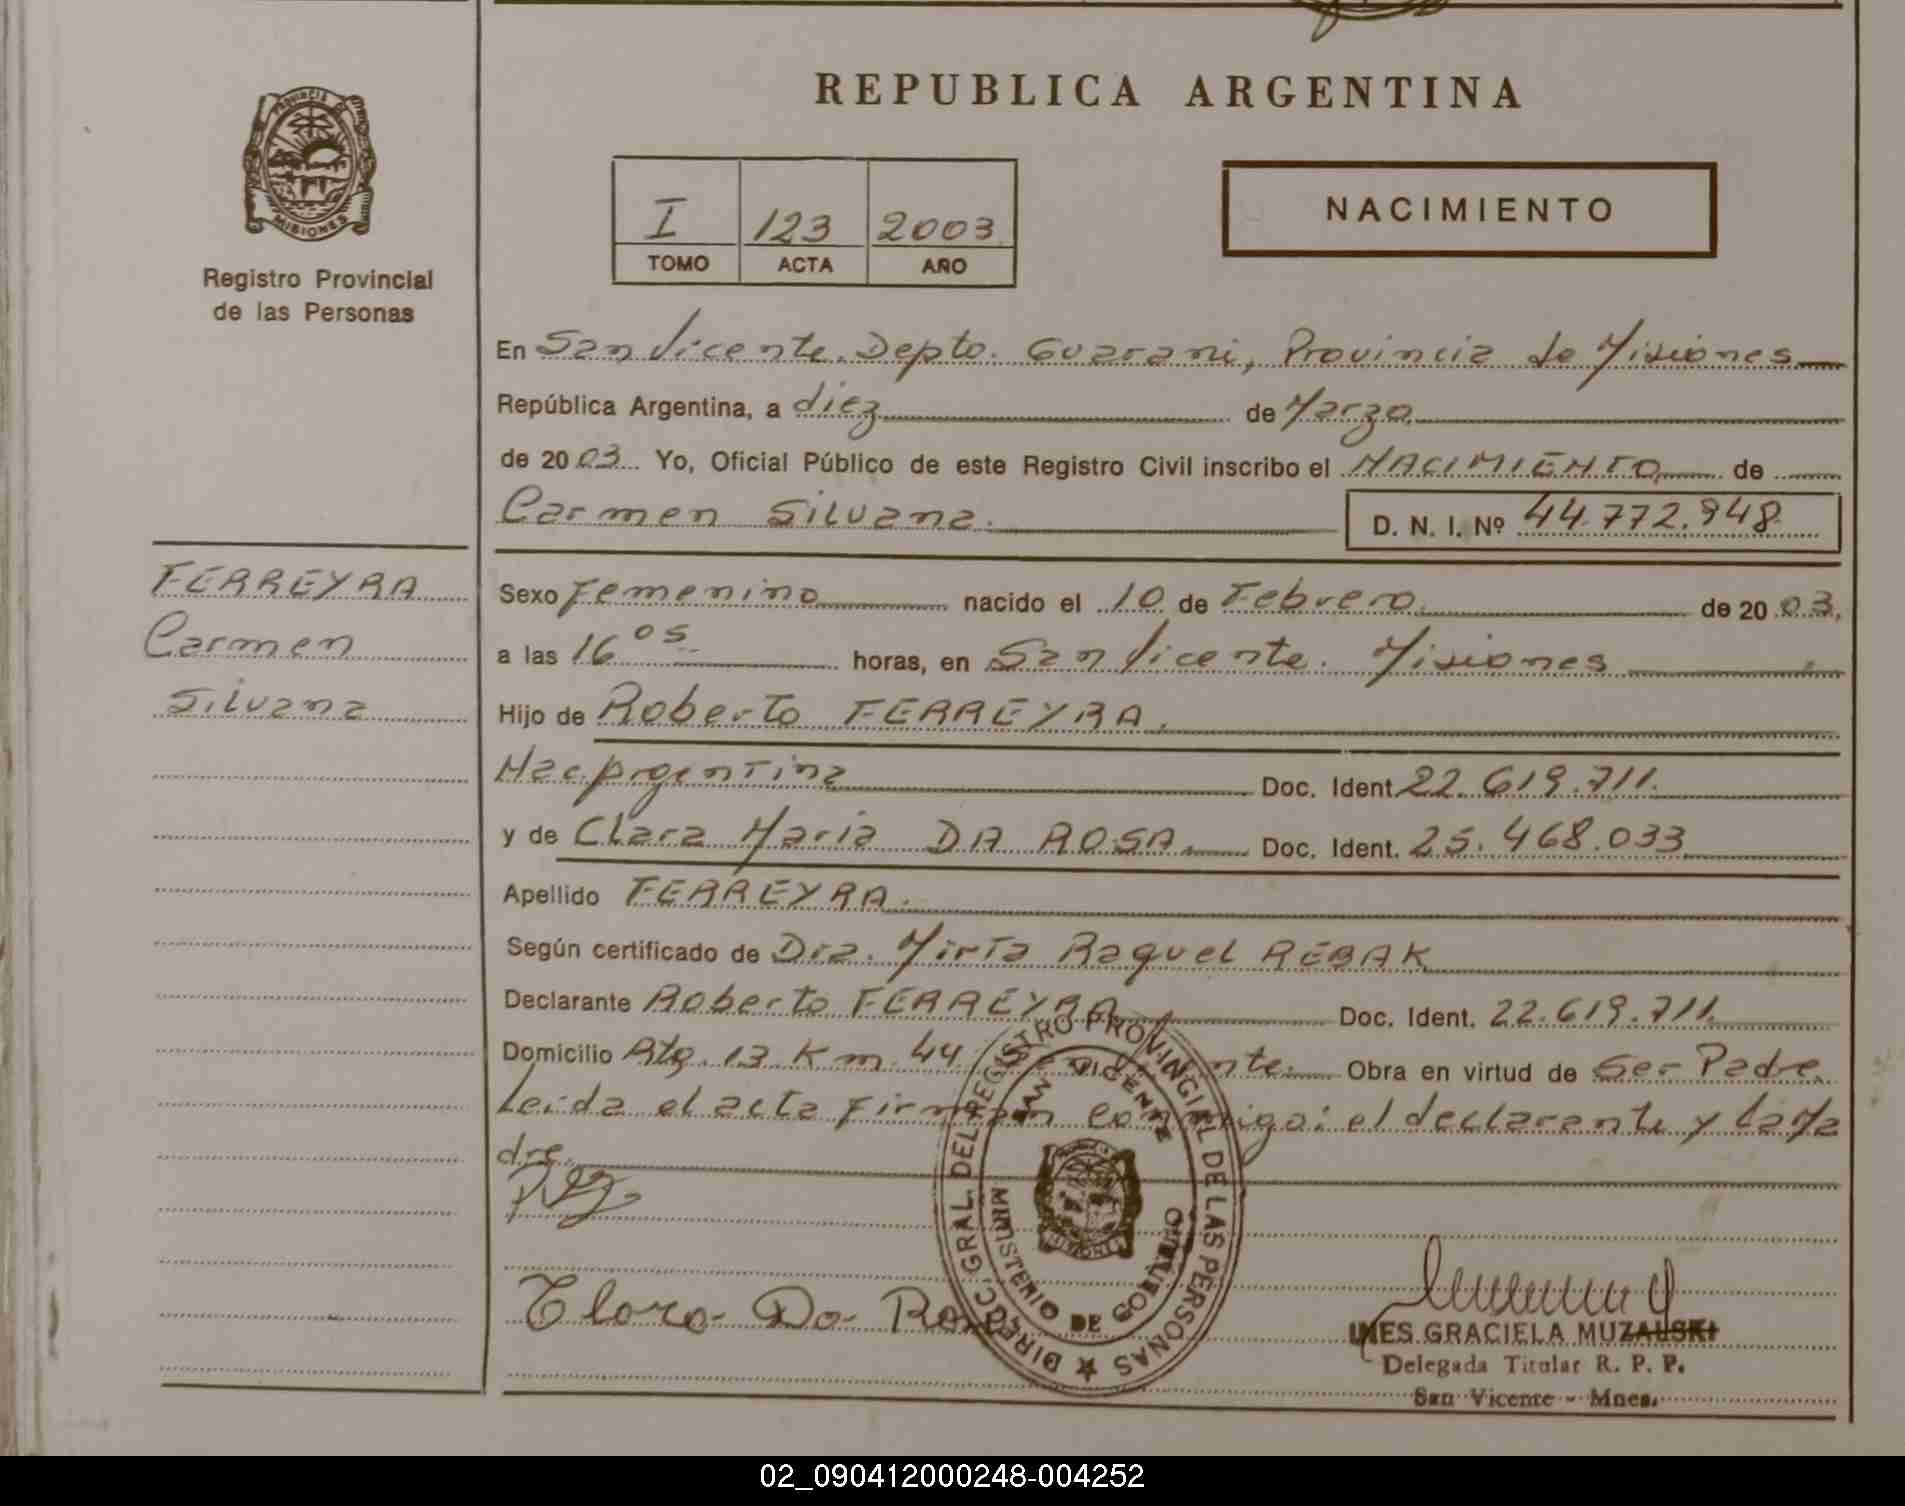 REPUBLICA ARGENTINA
PROVINCIA DE
MISIONES
Registro Provincial
de las Personas
I 123 2003
TOMO ACTA AÑO
NACIMIENTO
En San Vicente. Depto. Guarani, Provincia de Misiones
República Argentina, a diez de Marzo
de 2003 Yo, Oficial Público de este Registro Civil inscribo el NACIMIENTO de
Carmen Silvana. D. N. I. Nº 44.772.948
FERREYRA
Carmen
Silvana
Sexo Femenino nacido el 10 de Febrero de 2003,
a las 16 05 horas, en San Vicente. Misiones
Hijo de Roberto FERREYRA.
Nac. Argentina Doc. Ident. 22.619.711.
y de Clara Maria DA ROSA. Doc. Ident. 25.468.033
Apellido FERREYRA.
Según certificado de Dra. Mirta Raquel REBAK
Declarante Roberto FERREYRA Doc. Ident. 22.619.711.
Domicilio Rta. 13 Km. 44 Vicente. Obra en virtud de Ser Padre
Leida el acta firman conmigo: el declarante y la Ma
dre.
Clara Da Rosa
DIRECC. GRAL. DEL REGISTRO PROVINCIAL DE LAS PERSONAS
SAN VICENTE
MINISTERIO DE GOBIERNO
INES GRACIELA MUZALSKI
Delegada Titular R. P. P.
San Vicente - Mnes.
02_090412000248-004252